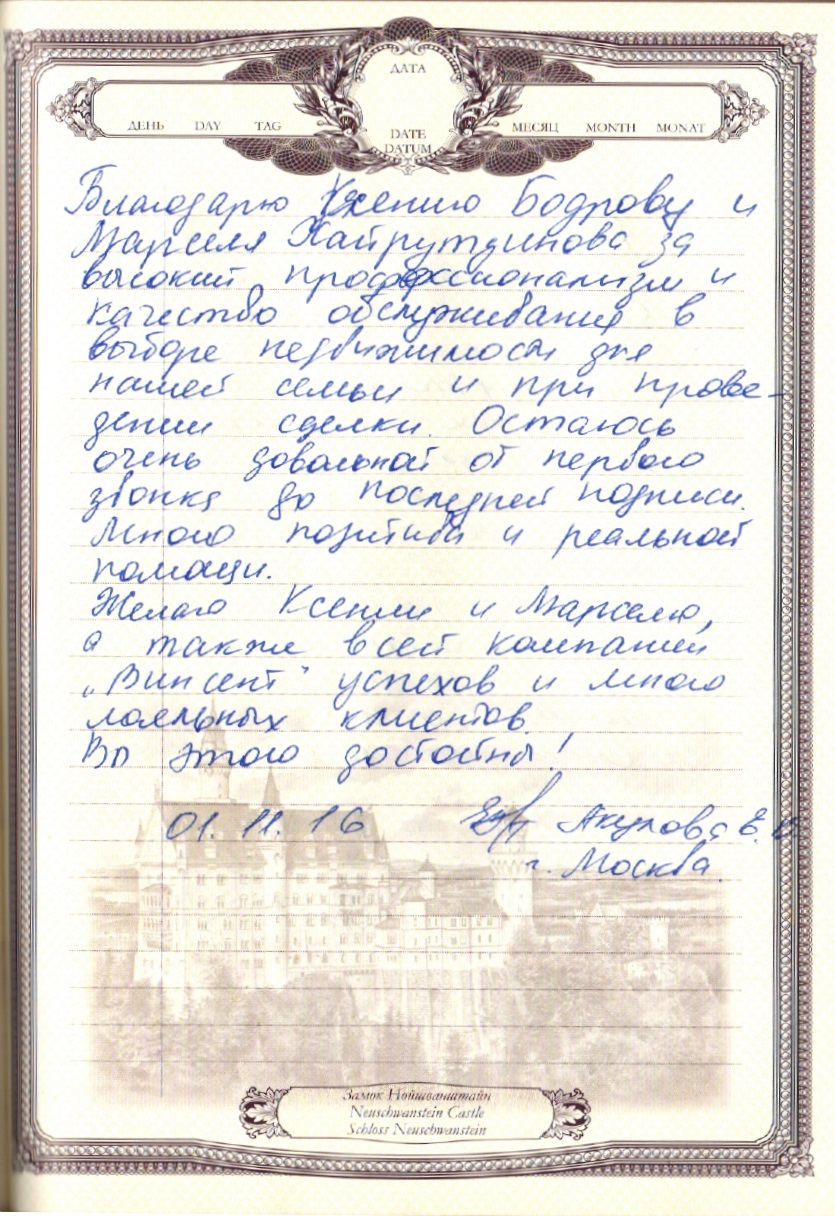 ДАТА
ДЕНЬ DAY TAG
DATE
DATUM
МЕСЯЦ MONTH MONAT
Благодарю Ксению Бодрову и
Марселя Хайрутдинова за
высокий профессионализм и
качество обслуживания в
выборе недвижимости для
нашей семьи и при прове-
дении сделки. Остаюсь
очень довольной от первого
звонка до последней подписи.
Много позитива и реальной
помощи.
Желаю Ксении и Марселю,
а также всей компании
„Винсент" успехов и много
лояльных клиентов.
Вы этого достойны!
01.11.16 Акулова Е.В
г. Москва.
Замок Нойшванштайн
Neuschwanstein Castle
Schloss Neuschwanstein